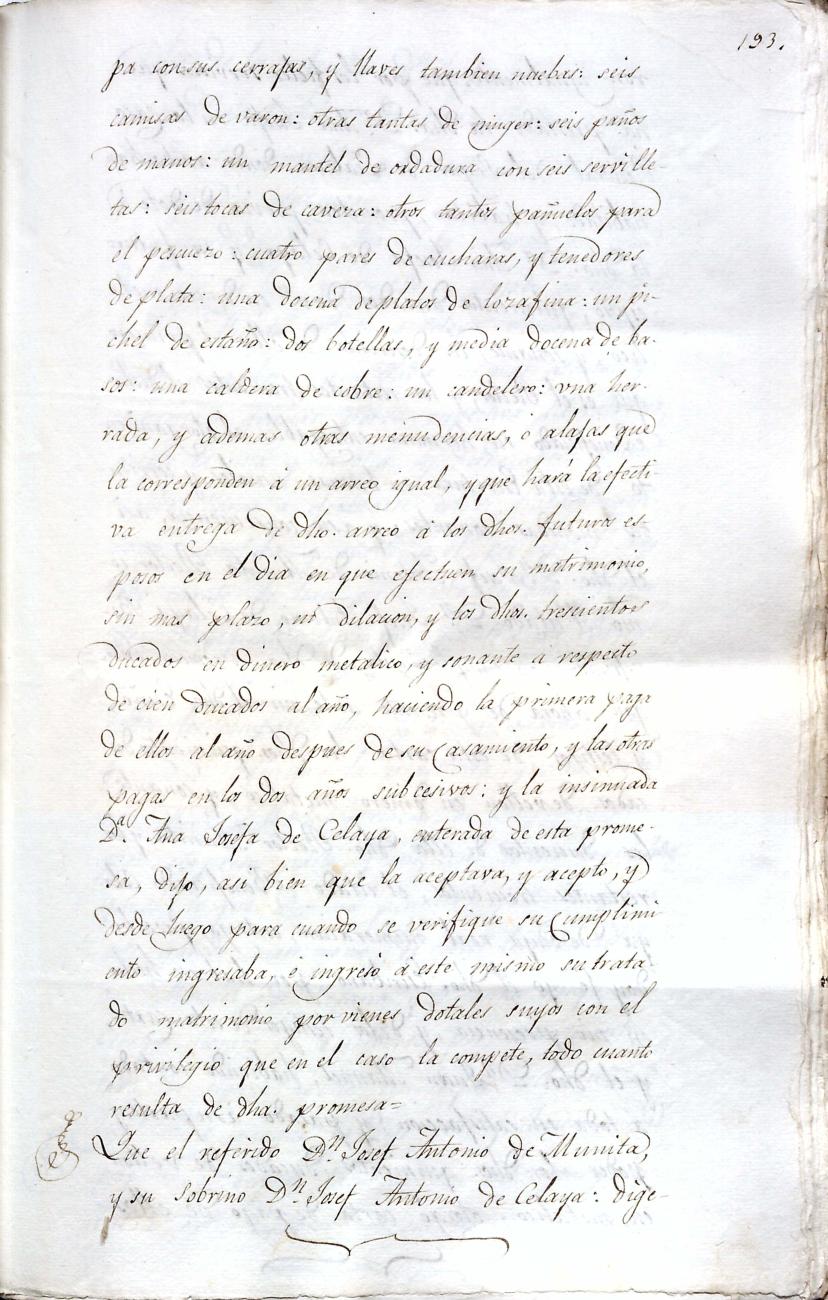 193.
pa con sus cerrajas, y llaves tambien nuebas: seis
camisas de varon: otras tantas de muger: seis paños
de manos: un mantel de ordadura con seis serville-
tas: seis tocas de caveza: otros tantos pañuelos para
el pescuezo: cuatro pares de cucharas, y tenedores
de plata: una docena de platos de loza fina: un pi-
chel de estaño: dos botellas, y media docena de ba-
sos: una caldera de cobre: un candelero: vna her-
rada, y ademas otras menudencias, ó alajas que
la corresponden á un arreo igual, y que hará la efecti-
va entrega de dho. arreo á los dhos. futuros es-
posos en el dia en que efectuen su matrimonio,
sin mas plazo, ni dilacion, y los dhos. trescientos
ducados en dinero metalico, y sonante á respecto
de cien ducados al año, haciendo la primera paga
de ellos al año despues de su Casamiento, y las otras
pagas en los dos años subcesivos: y la insinuada
Dª. Ana Josefa de Celaya, enterada de esta prome-
sa, dijo, asi bien que la aceptava, y acepto, y
desde luego para cuando se verifique su Cumplimi-
ento ingresaba, é ingresó á este mismo su trata
do matrimonio por vienes dotales suyos con el
privilegio que en el caso la compete, todo cuanto
resulta de dha. promesa=
Que el referido Dn. Josef Antonio de Munita,
y su sobrino Dn. Josef Antonio de Celaya: dige-